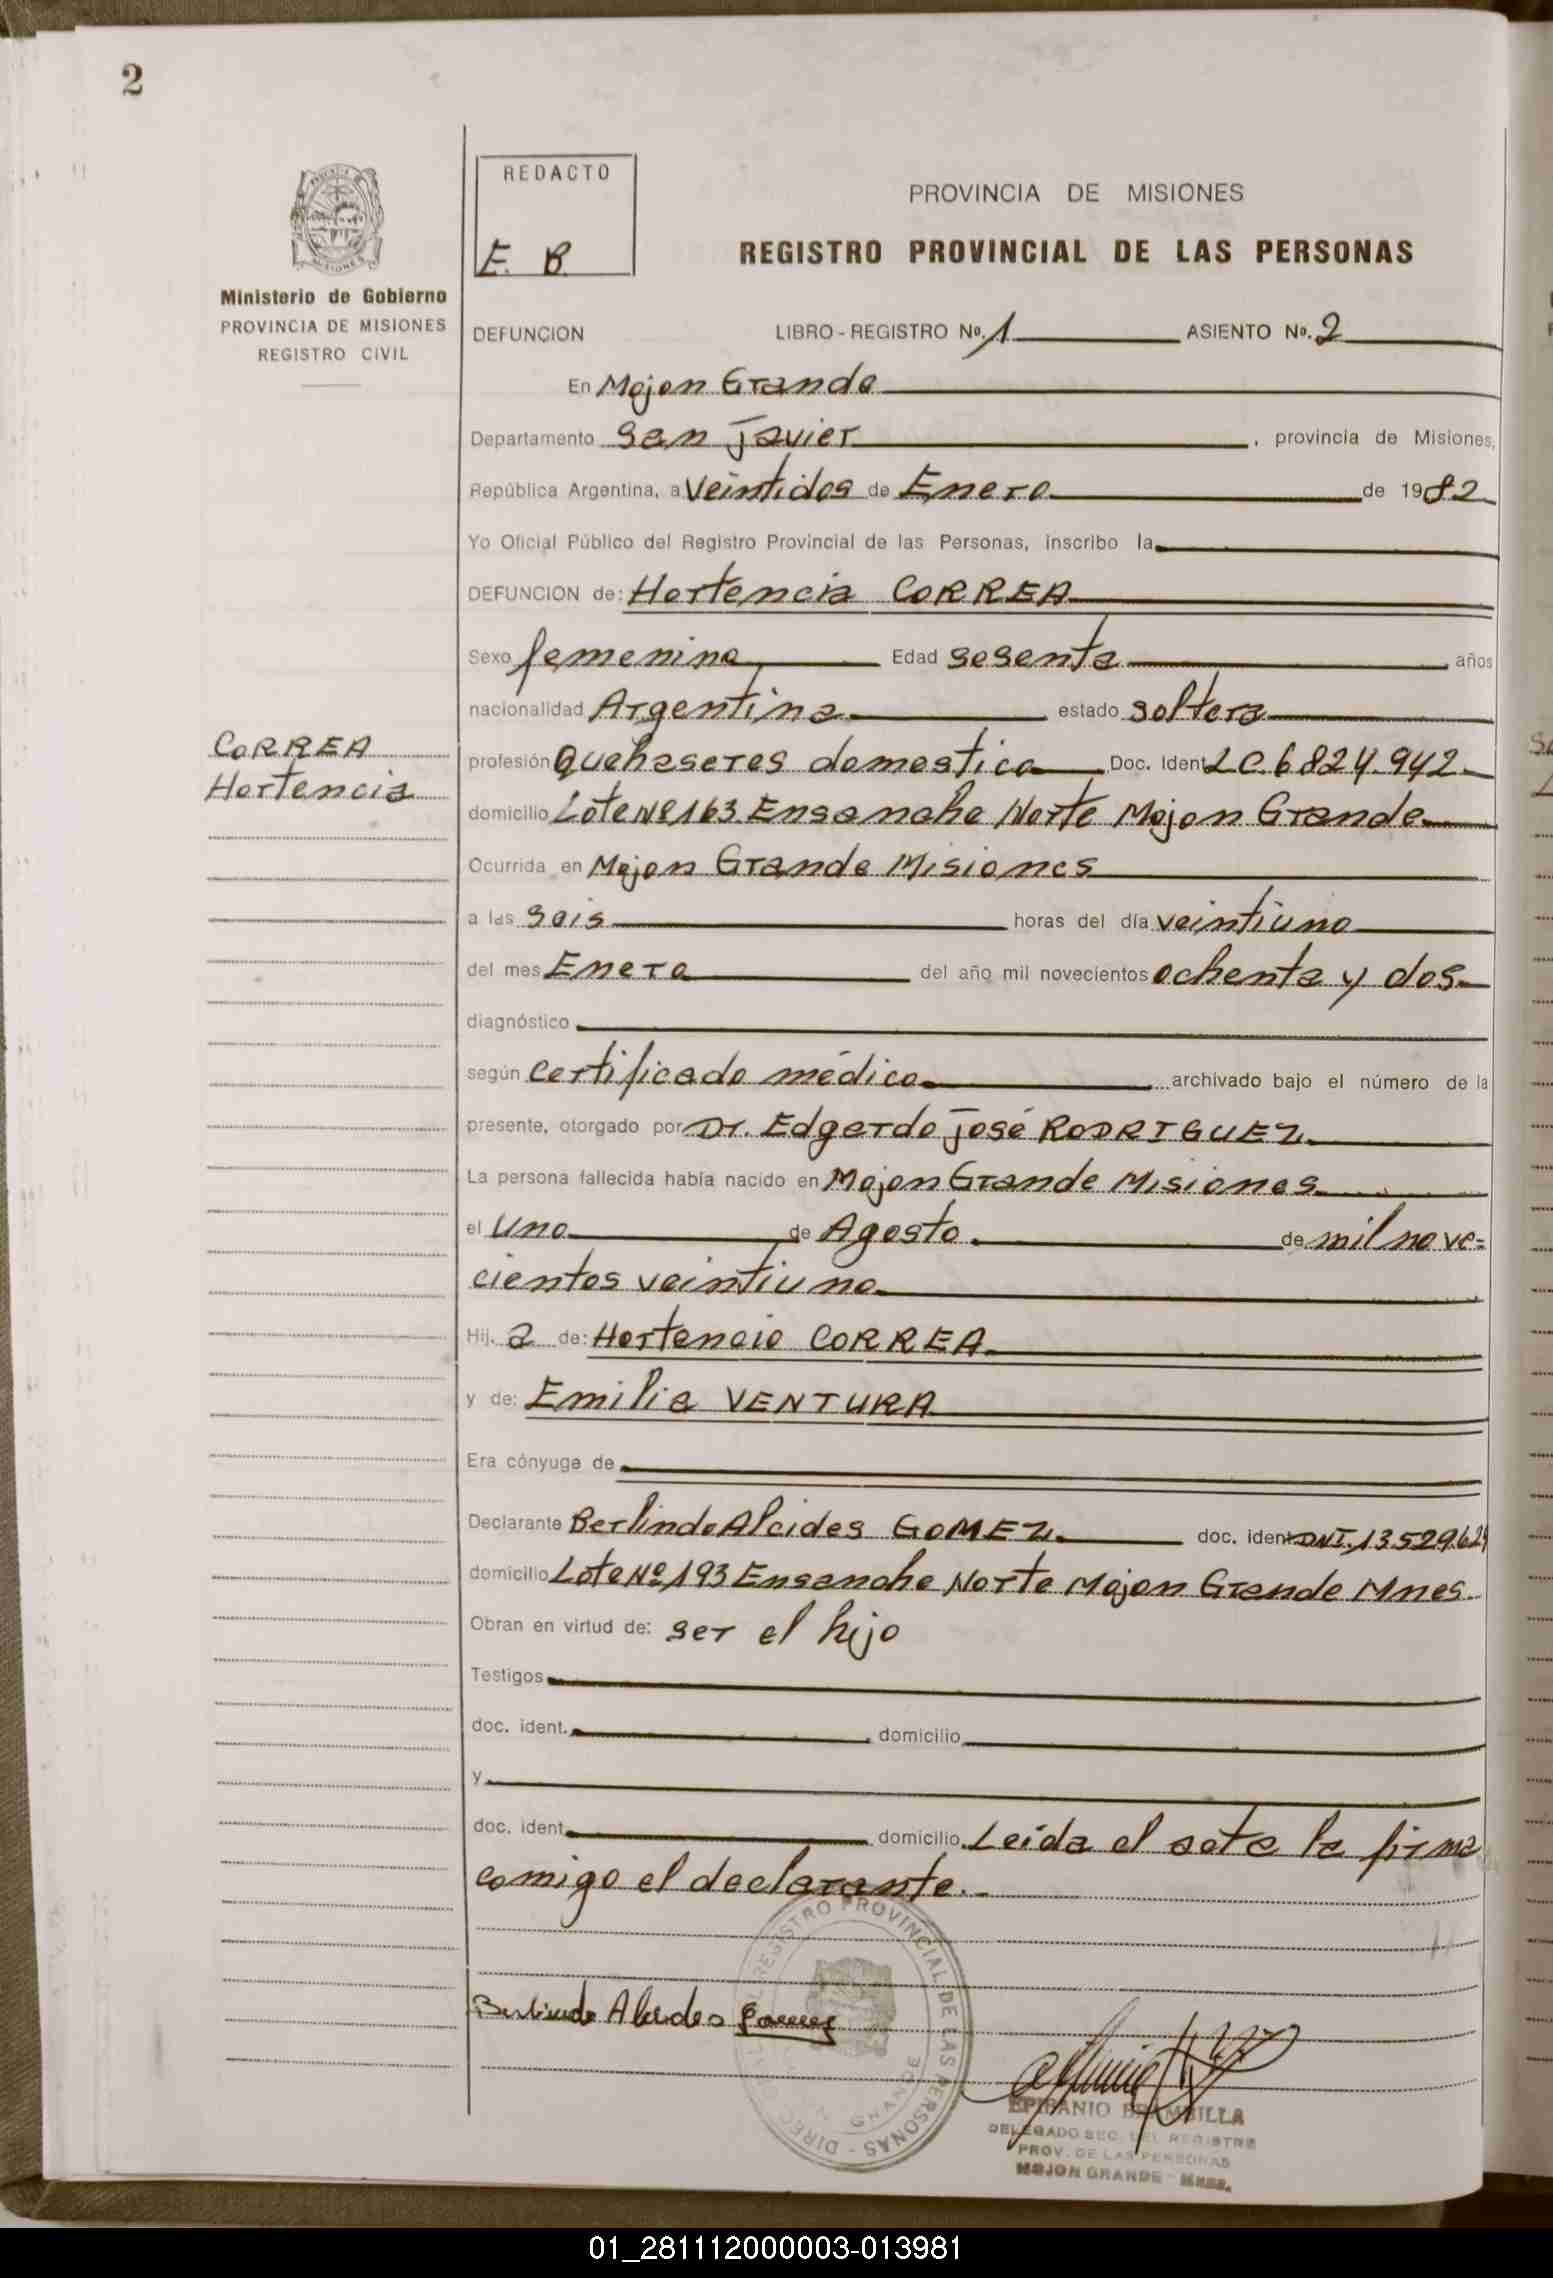 2
REDACTO
E. B.
PROVINCIA DE MISIONES
REGISTRO PROVINCIAL DE LAS PERSONAS
Ministerio de Gobierno
PROVINCIA DE MISIONES
REGISTRO CIVIL
DEFUNCION LIBRO - REGISTRO Nº. 1 ASIENTO Nº. 2
En Mojon Grande
Departamento San Javier, provincia de Misiones,
República Argentina, a Veintidos de Enero de 1982
Yo Oficial Público del Registro Provincial de las Personas, inscribo la
DEFUNCION de: Hortencia CORREA
Sexo femenino Edad sesenta años
nacionalidad Argentina estado soltera
CORREA
Hortencia
profesión Quehaseres domestico Doc. Ident LC 6824.942
domicilio Lote Nº 163 Ensanche Norte Mojon Grande
Ocurrida en Mojon Grande Misiones
a las seis horas del día veintiuno
del mes Enero del año mil novecientos ochenta y dos
diagnóstico
según certificado médico archivado bajo el número de la
presente, otorgado por Dr. Edgardo José RODRIGUEZ
La persona fallecida había nacido en Mojon Grande Misiones
el Uno de Agosto de mil nove=
cientos veintiuno
Hij. a de: Hortencio CORREA
y de: Emilia VENTURA
Era cónyuge de
Declarante Berlindo Alcides GOMEZ doc. ident DNI. 13.529.624
domicilio Lote Nº 193 Ensanche Norte Mojon Grande Mnes.
Obran en virtud de: ser el hijo
Testigos
doc. ident. domicilio
y
doc. ident. domicilio Leida el acta la firma
comigo el declarante.-
REGISTRO PROVINCIAL DE LAS PERSONAS - DIREC
GRANDE
Berlindo Alcides Gomez
EPIFANIO BRAMBILLA
DELEGADO SEC. DEL REGISTRO
PROV. DE LAS PERSONAS
MOJON GRANDE - Mnes.
01_281112000003-013981